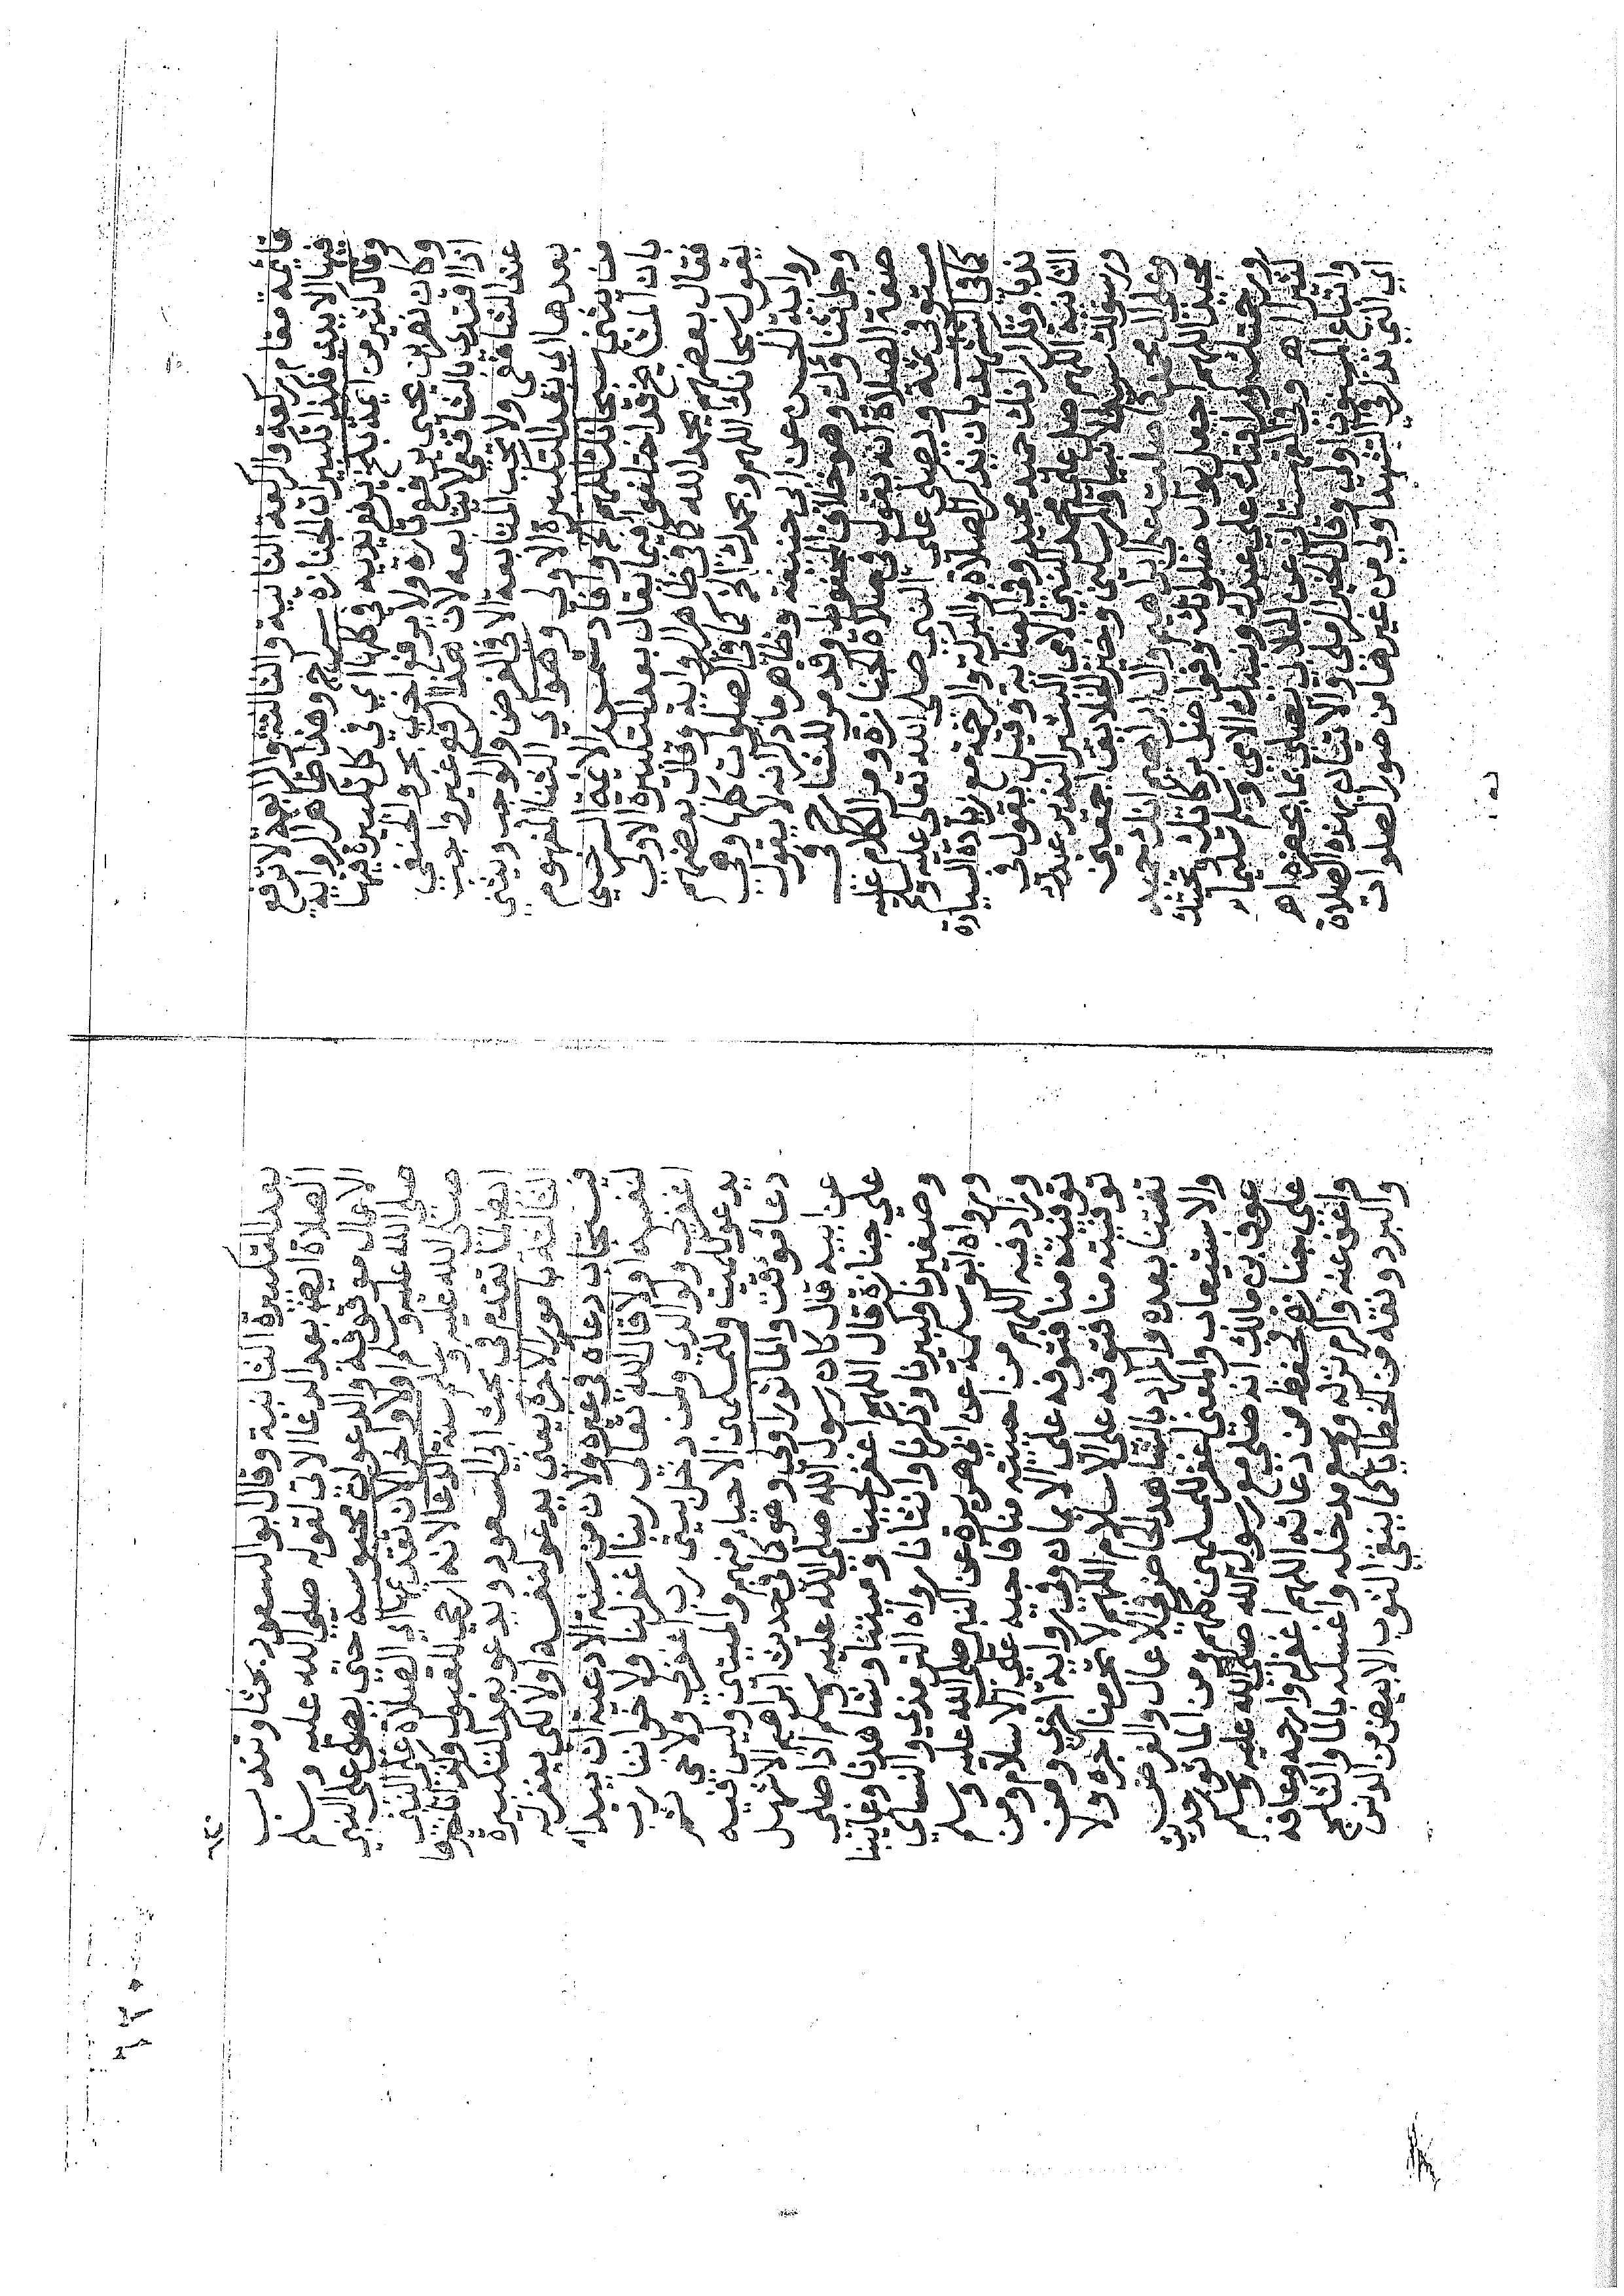 قائمة مقام ركعة والركعة الثانية والثالثة والرابعة لا ترفع
فيها الايدي فكذا تكبيرات الجنازة وهذا ظاهر الرواية
وقال كثير من ايمة بلخ يرفع يديه في كلها اي في كل تكبيرة فيها
وكان نصر بن يحيى يرفع تارة ولا يرفع اخرى بحر والحنفي
اذا اقتدى بالشافعي لا يتابعه لان هذا الرفع غير واجب
عند الشافعي ولا تجب المتابعة الا في الفرض والواجب ويثني
بعدها اي بعد التكبيرة الاولى وهو اي الثنا المفهوم
من يثني سبحانك اللهم الخ وافاد شمس الايمة السرخسي
بان المشايخ قد اختلفوا فيما يقال بعد التكبيرة الاولى
فقال بعضهم يحمد الله كما في ظاهر الرواية وقال بعضهم
يقول سبحانك اللهم وبحمدك الخ كما في الصلوات كلها وهي
رواية الحسن عن ابي حنيفة وظاهر ما ذكر انه لا يقول
وجل ثناؤك وهو خلاف المحفوظ وقد مر الثنا في
صفة الصلاة انه يقول في صلاة الجنازة ومر الكلام عليه
مستوفى ثمة ويصلي على النبي صلى الله تعالى عليه وسلم
كما في التشهد بان يذكر الصلاة والبركة والرحمة مع زيادة السيادة
ندبا وتكرار انك حميد مجيد وفي وقيل يقول في
الثانية اللهم صل على محمد النبي الامي البشير النذير عبدك
ورسولك سيد الانبيا والمرسلين وخير الخلايق اجمعين
وعلى ال محمد كما صليت على ابراهيم وال ابراهيم انك حميد
مجيد اللهم اجعل نوافل صلواتك وفواضل بركاتك وتحيتك
ورحمتك ورافتك على عبدك ونبيك الامي وسلم تسليما
كثيرا اهـ وفي عن يصلي بما يحضره اهـ
واتباع المسنون اولى وقال الخير الرملي والاتيان بهذه الصلاة
اي التي تذكر في التشهد اولى من غيرها من صور الصلوات
بعد التكبيرة الثانية وقال ابو السعود بحثا وتندب
الصلاة ايضا بعد الدعا الاتي لقوله صلى الله عليه وسلم
الاعمال موقوفة والدعوات محبوسة حتى يصلى على النبي
صلى الله عليه وسلم اولا واخرا لان تقديمها اي الصلاة على النبي
صلى الله عليه وسلم سنة الدعا لانه ارجى للقبول
ايضا تقدم في بحث ابي السعود ويدعو بعد التكبيرة
الثالثة بامور الاخرة يعني يدعو لنفسه اولا لكي يغفر له
فيستجاب دعاه في غيره ولان من سنة الادعية ان يبدا
بنفسه اولا قال الله تعالى ربنا اغفر لنا ولاخواننا رب
اغفر لي ولوالدي ولمن دخل بيتي رب اغفر لي ولاخي ثم
يدعو للميت وللمسلمين الاحيا منهم والميتين وليس فيه
دعا موقت والماثور اولى وهو كما في حديث ابراهيم الاشهل
عن ابيه قال كان رسول الله صلى الله عليه وسلم اذا صلى
على جنازة قال اللهم اغفر لحينا وميتنا وشاهدنا وغايبنا
وصغيرنا وكبيرنا وذكرنا وانثانا رواه الترمذي والنساي
ورواه ابو سلمة عن ابي هريرة عن النبي صلى الله عليه وسلم
وزاد فيه اللهم من احييته منا فاحيه على الاسلام ومن
توفيته منا فتوفه على الايمان وفي رواية اخرى ومن
توفيته منا فتوفه على الاسلام اللهم لا تحرمنا اجره ولا
تفتنا بعده والمراد بالشاهد الحاضر في الاعمال والغرض
والاستيعاب والمعنى اغفر للمسلمين كلهم ومن الماثور حديث
عوف بن مالك انه صلى مع رسول الله صلى الله عليه وسلم
على جنازة فحفظ من دعائه اللهم اغفر له وارحمه وعافه
واعف عنه واكرم نزله ووسع مدخله واغسله بالما والثلج
والبرد ونقه من الخطايا كما ينقى الثوب الابيض من الدنس